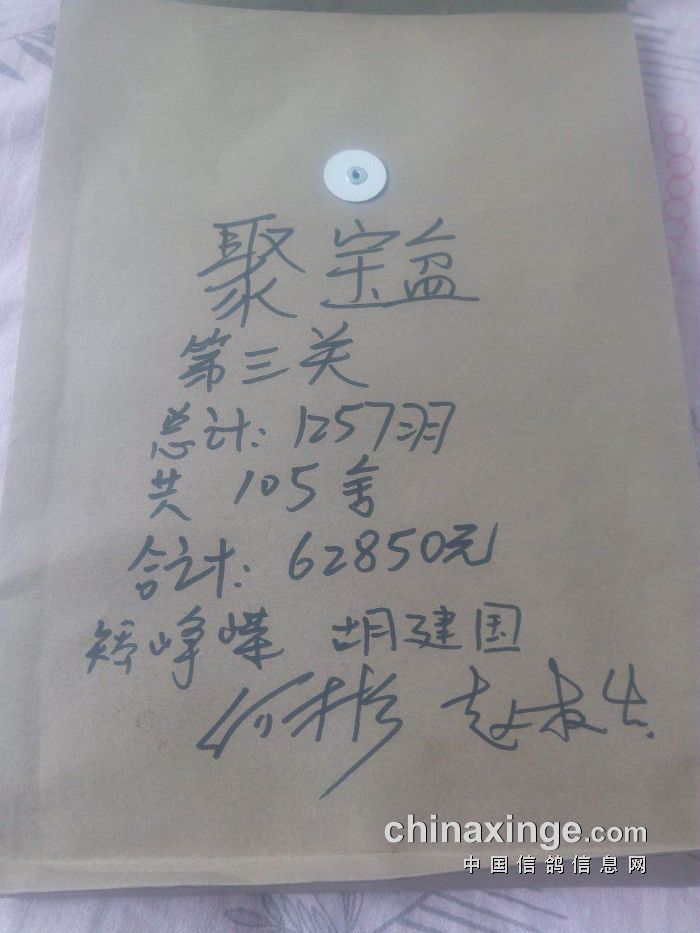 聚宝盆
第三关
总计: 1257羽
共 105舍
合计: 62850元
峥嵘 胡建国
何彬 赵
chinaxinge.com
中国信鸽信息网